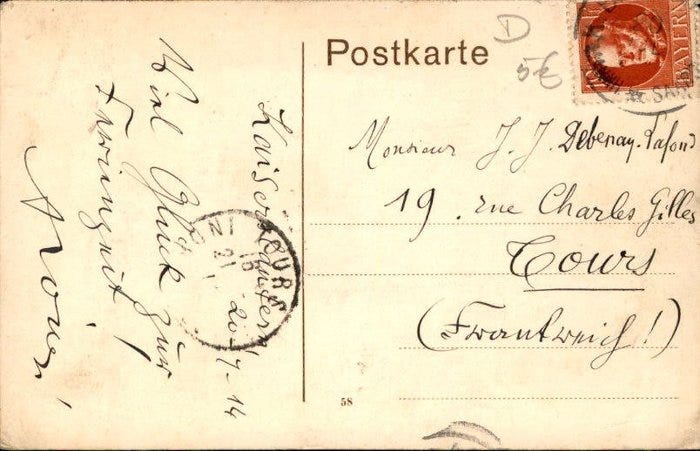 Postkarte
D
5€
BAYERN
Kaiserslautern
20-7-14
Viel Glück zur
Adieu!
TOURS
18
21
Monsieur J. J. Debenay-Lafond
19. rue Charles Gilles
Tours
(Frankreich!)
58